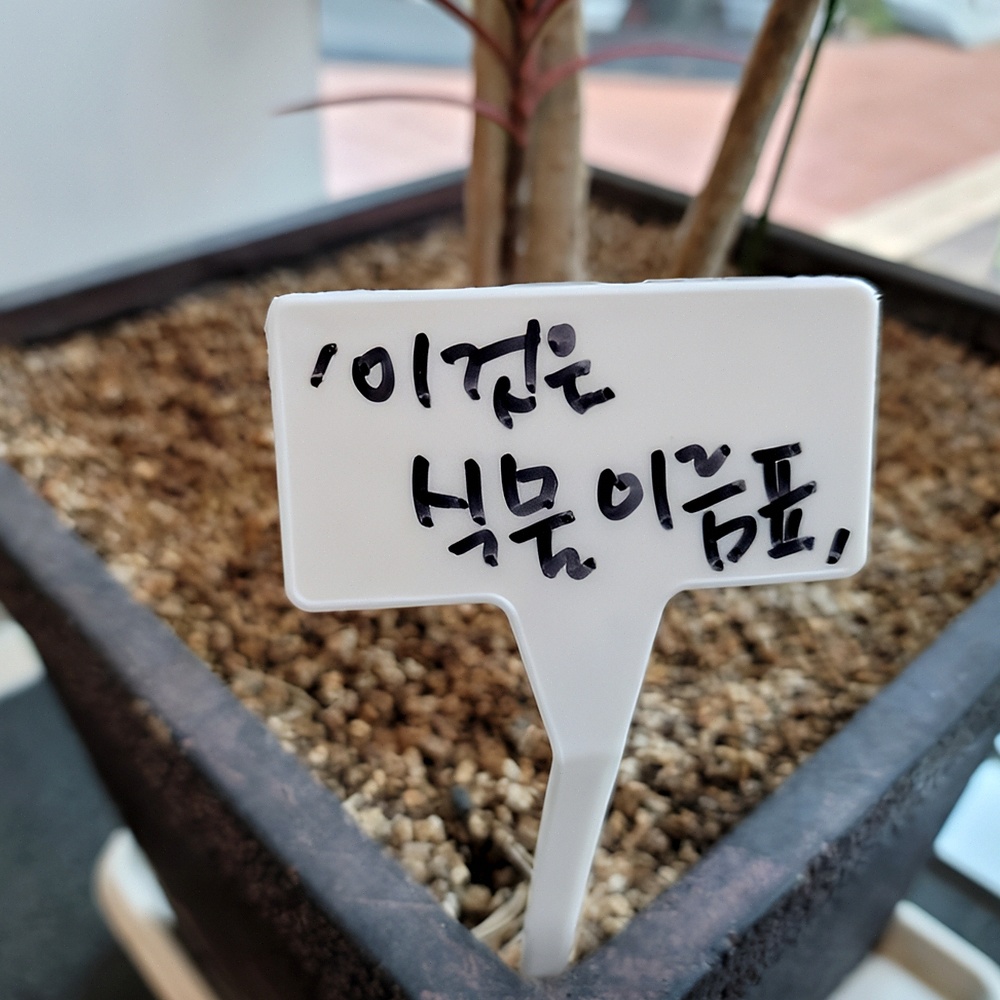 '이것은
식물 이름표,